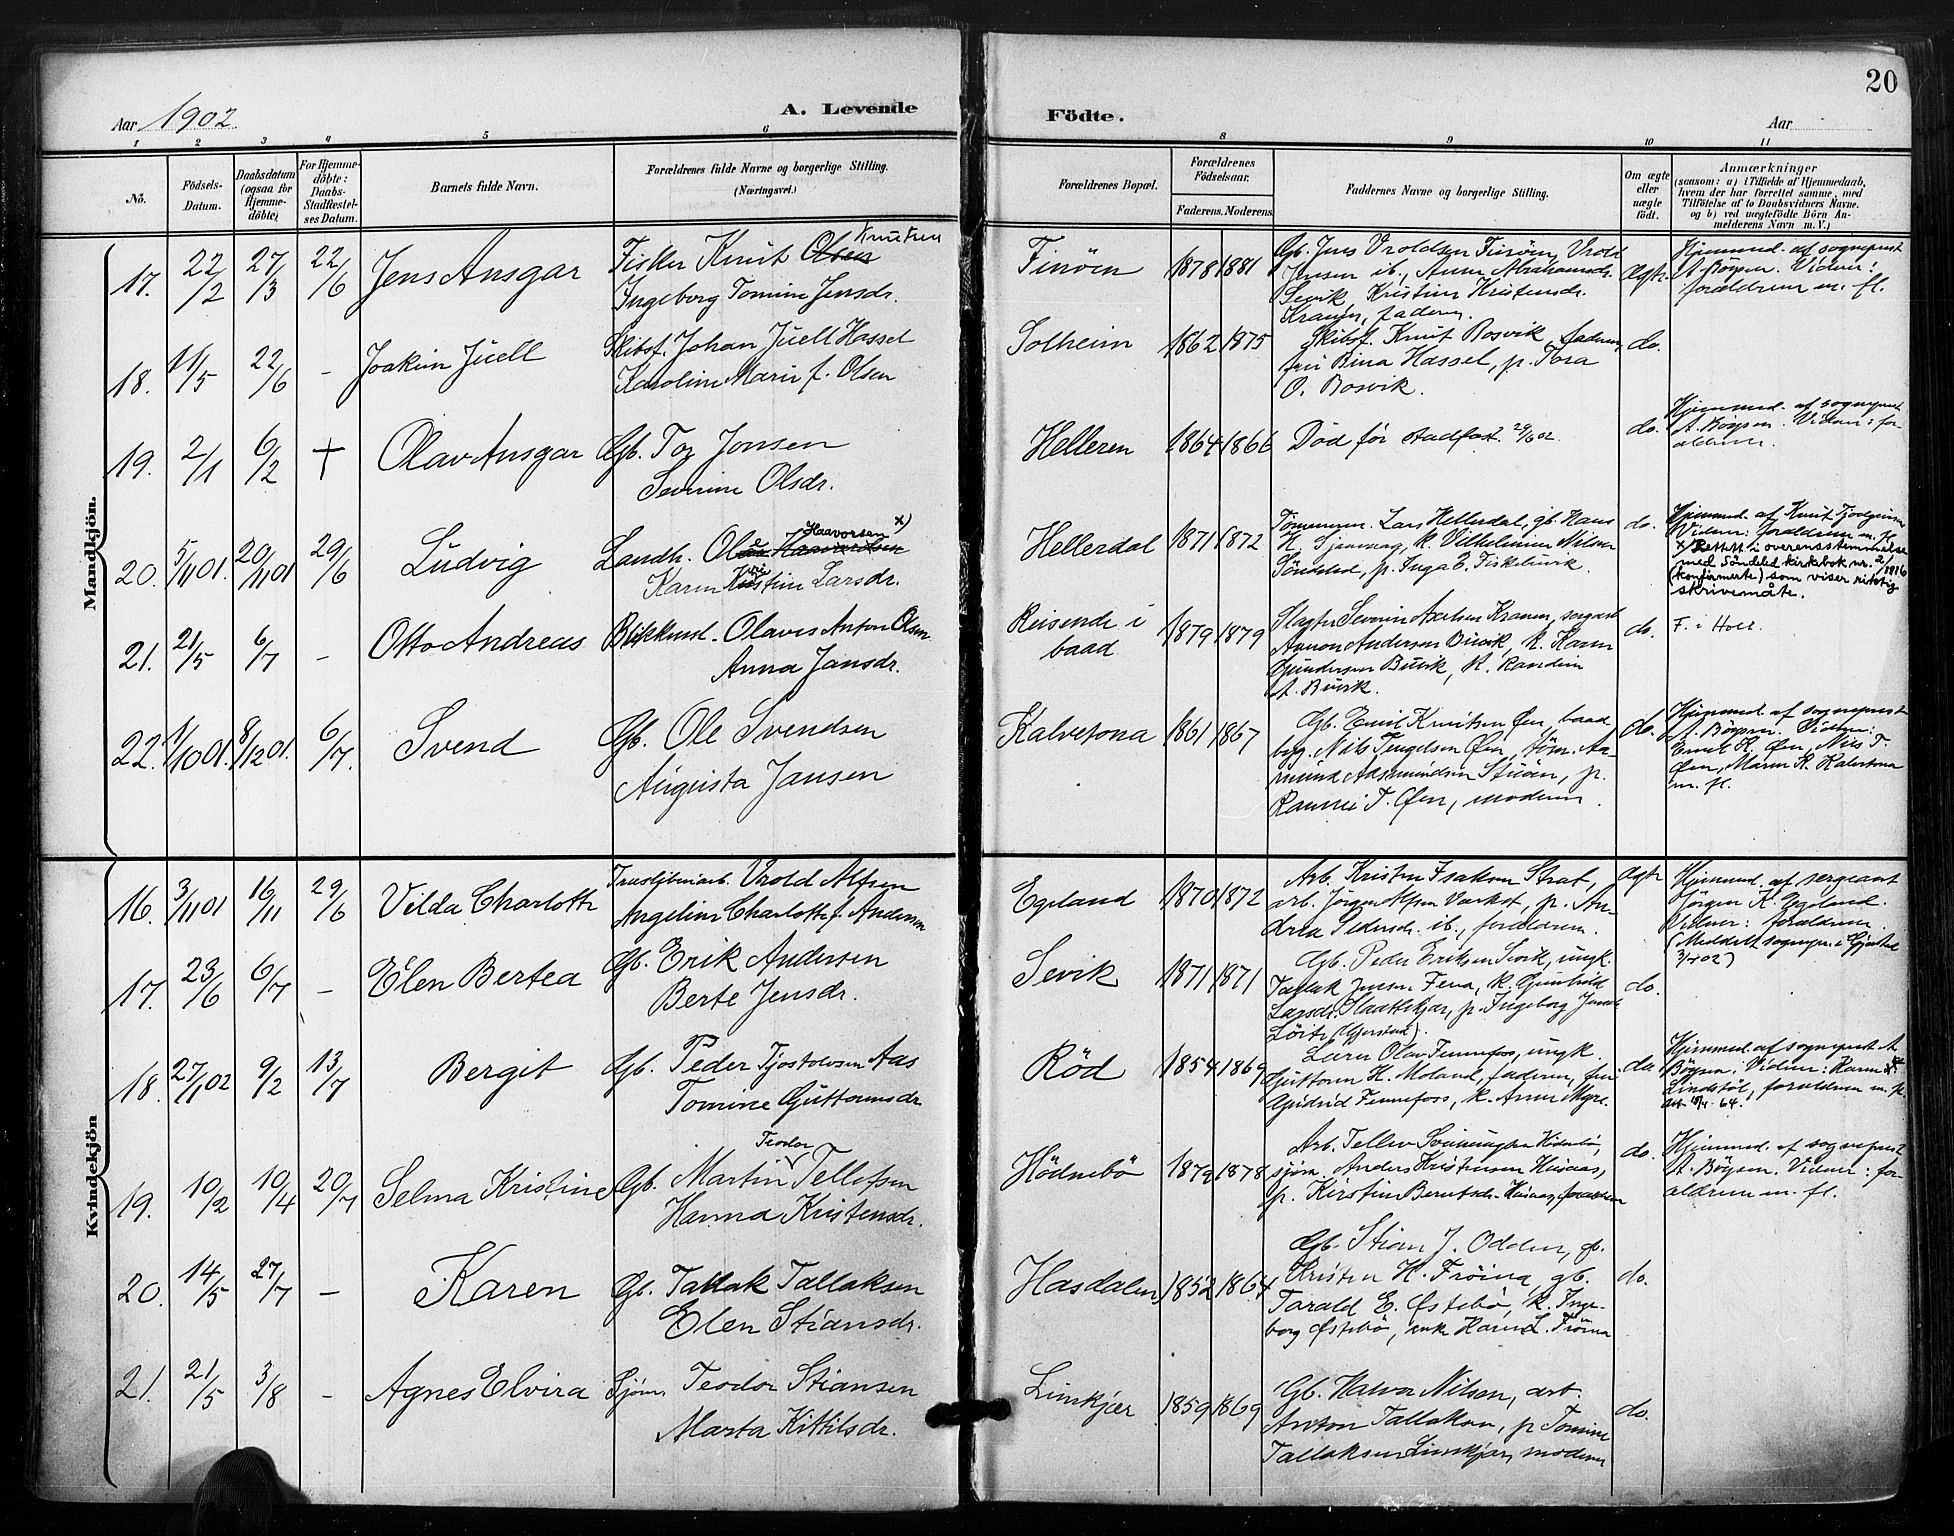 20
Aar 1902.
A. Levende
Födte.
Aar
1
2
3
4
5
6
8
9
10
11
No.
Födsels-
Datum.
Daabsdatum
(ogsaa for
Hjemme-
döbte)
For Hjemme-
döbte:
Daabs-
Stadfæstel-
ses Datum.
Barnets fulde Navn.
Forældrenes fulde Navne og borgerlige Stilling.
(Næringsvei.)
Forældrenes Bopæl.
Forældrenes
Födselsaar.
Faderens. Moderens.
Faddernes Navne og borgerlige Stilling.
Om ægte
eller
uægte
født.
Anmærkninger
(saasom: a) i Tilfælde af Hjemmedaab,
hvem der har forrettet samme, med
Tilföielse af to Daabsvidners Navne.
og b) ved uægtefödte Börn An-
melderens Navn m. V.)
Mandkjön.
17. 22/2 27/3 22/6 Jens Ansgar
Fisker Knut Olsen Knutsen
Ingeborg Tomine Jensdr.
Finöen 1878 1881
Gb. Jens Vroldsen Finöen, Vrold
Jensen ib., Anne Abrahamsdr.
Sevik, Kristine Kristensdr.
Kranen, faderen.
Ægte
Hjemmed. af sogneprest
A. Bögsen. Vidner:
forældrene m. fl.
18. 11/5 22/6 - Joakim Juell
Skibsf. Johan Juell Hassel
Karoline Marie f. Olsen
Solheim 1862 1875
Skibsf. Knut Bosvik, faderen,
fru Bina Hassel, p. Tora
O. Bosvik.
do.
19. 2/1 6/2 † Olav Ansgar
Gb. Tor Jonsen
Sevrine Olsdr.
Helleren 1864 1866
Död før stadfæst. 29/6 02.
do.
Hjemmed. af sogneprest
A. Bögsen. Vidner: for-
ældrene.
20. 5/11 01. 20/11 01 29/6 Ludvig
Landh. Ole Haavorsen x)
Karen Kristine Larsdr.
Hellerdal 1871 1872
Tømmerm. Lars Hellerdal, gb. Hans
Söndeled, p. Inga E. Fiskebuvik.
do.
Hjemmed. af Knut
Vidner: Forældrene m. fl
x) Rettet i overensstemmelse
med Söndeled kirkebok nr. 2/1916
(konfirmerte) som viser riktig
skrivemåte.
21. 21/5 6/7 - Otto Andreas
Blikkensl. Olaves Anton Olsen
Anna Jansdr.
Reisende i
baad
1879 1879
Slagter Sevrin Axelsen Kranen,
Anton Andersen Buvik, k. Karen
Gundersen Buvik, k. Randine
A. Buvik.
do.
F. i Holt.
22. 1/10 01. 8/12 01. 6/7. Svend
Gb. Ole Svendsen
Augusta Jansen
Kalvetona 1861 1867
Gb. Emil Knutsen Øen, baad
byg. Nils Tengelsen Øen, töm. Aa-
Rannei T. Øen, moderen.
do.
Hjemmed. af sogneprest
A. Bögsen. Vidner:
Emil K. Øen, Nils T.
Øen, Maren K. Kalvetona
m. fl.
Kvindekjön
16. 3/11 01 16/11 29/6 Vilda Charlotte
Træsliberiarb. Vrold Alfsen
Angeline Charlotte f. Andersen
Egeland 1870 1872
Arb. Kristen Isaksen Strat,
arb. Jörgen Alfsen Værket, p. An-
drea Pedersdr. ib., forældrene.
Ægte
Hjemmed. af sergeant
Jörgen K. Egeland.
Vidner: forældrene.
(Meddelt sognepr. i Gjerstad
17. 23/6 6/7 - Elen Bertea
Gb. Erik Andersen
Berte Jensdr.
Sevik 1871 1871
Gb. Peder Eriksen Sevik, ungk.
Tallak Jensen Fena, k. Gunhild
Larsdr. p. Ingeborg
Löite (Gjerstad).
do.
18. 27/1 02 9/2 13/7 Bergit
Gb. Peder Tjostolvsen Aas
Tomine Guttormsdr
Röd 1854 1869
Lærer Olav Fennefoss, ungk.
Guttorm H. Moland, faderen, fru
Gudrid Fennefoss, k. Anne Myre.
do
Hjemmed. af sogneprest A
Bögsen. Vidner: Karen
Lindstöl, forældrene m. fl.
19. 10/2 10/4 20/7 Selma Kristine
Gb. Martin Teodor Tellefsen
Hanna Kristensdr.
Hödnebö 1872 1878
Arb. Tellev Hödnebö,
sjöm. Anders Kristensen Husaas,
p. Kirstine Berntsdr. Husaas, forældrene
do.
Hjemmed. af sogneprest
A. Bögsen. Vidner: for-
ældrene m. fl.
20. 14/5 27/7 - Karen
Gb. Tallak Tallaksen
Elen Stiansdr.
Hasdalen 1852 1864
Gb. Stian J. Odden, gb.
Kristen H. Fröina, gb.
Tarald E. Østebö, k. Inge-
borg Østebö, enke Karen L. Fröina
do.
21. 21/5 3/8 - Agnes Elvira
Sjöm. Teodor Stiansen
Marta Kittilsdr.
Limkjær 1859 1869
Gb. Halvor Nilsen, arb.
Anton Tallaksen, p. Tomine
Tallaksen Limkjær, moderen
do.